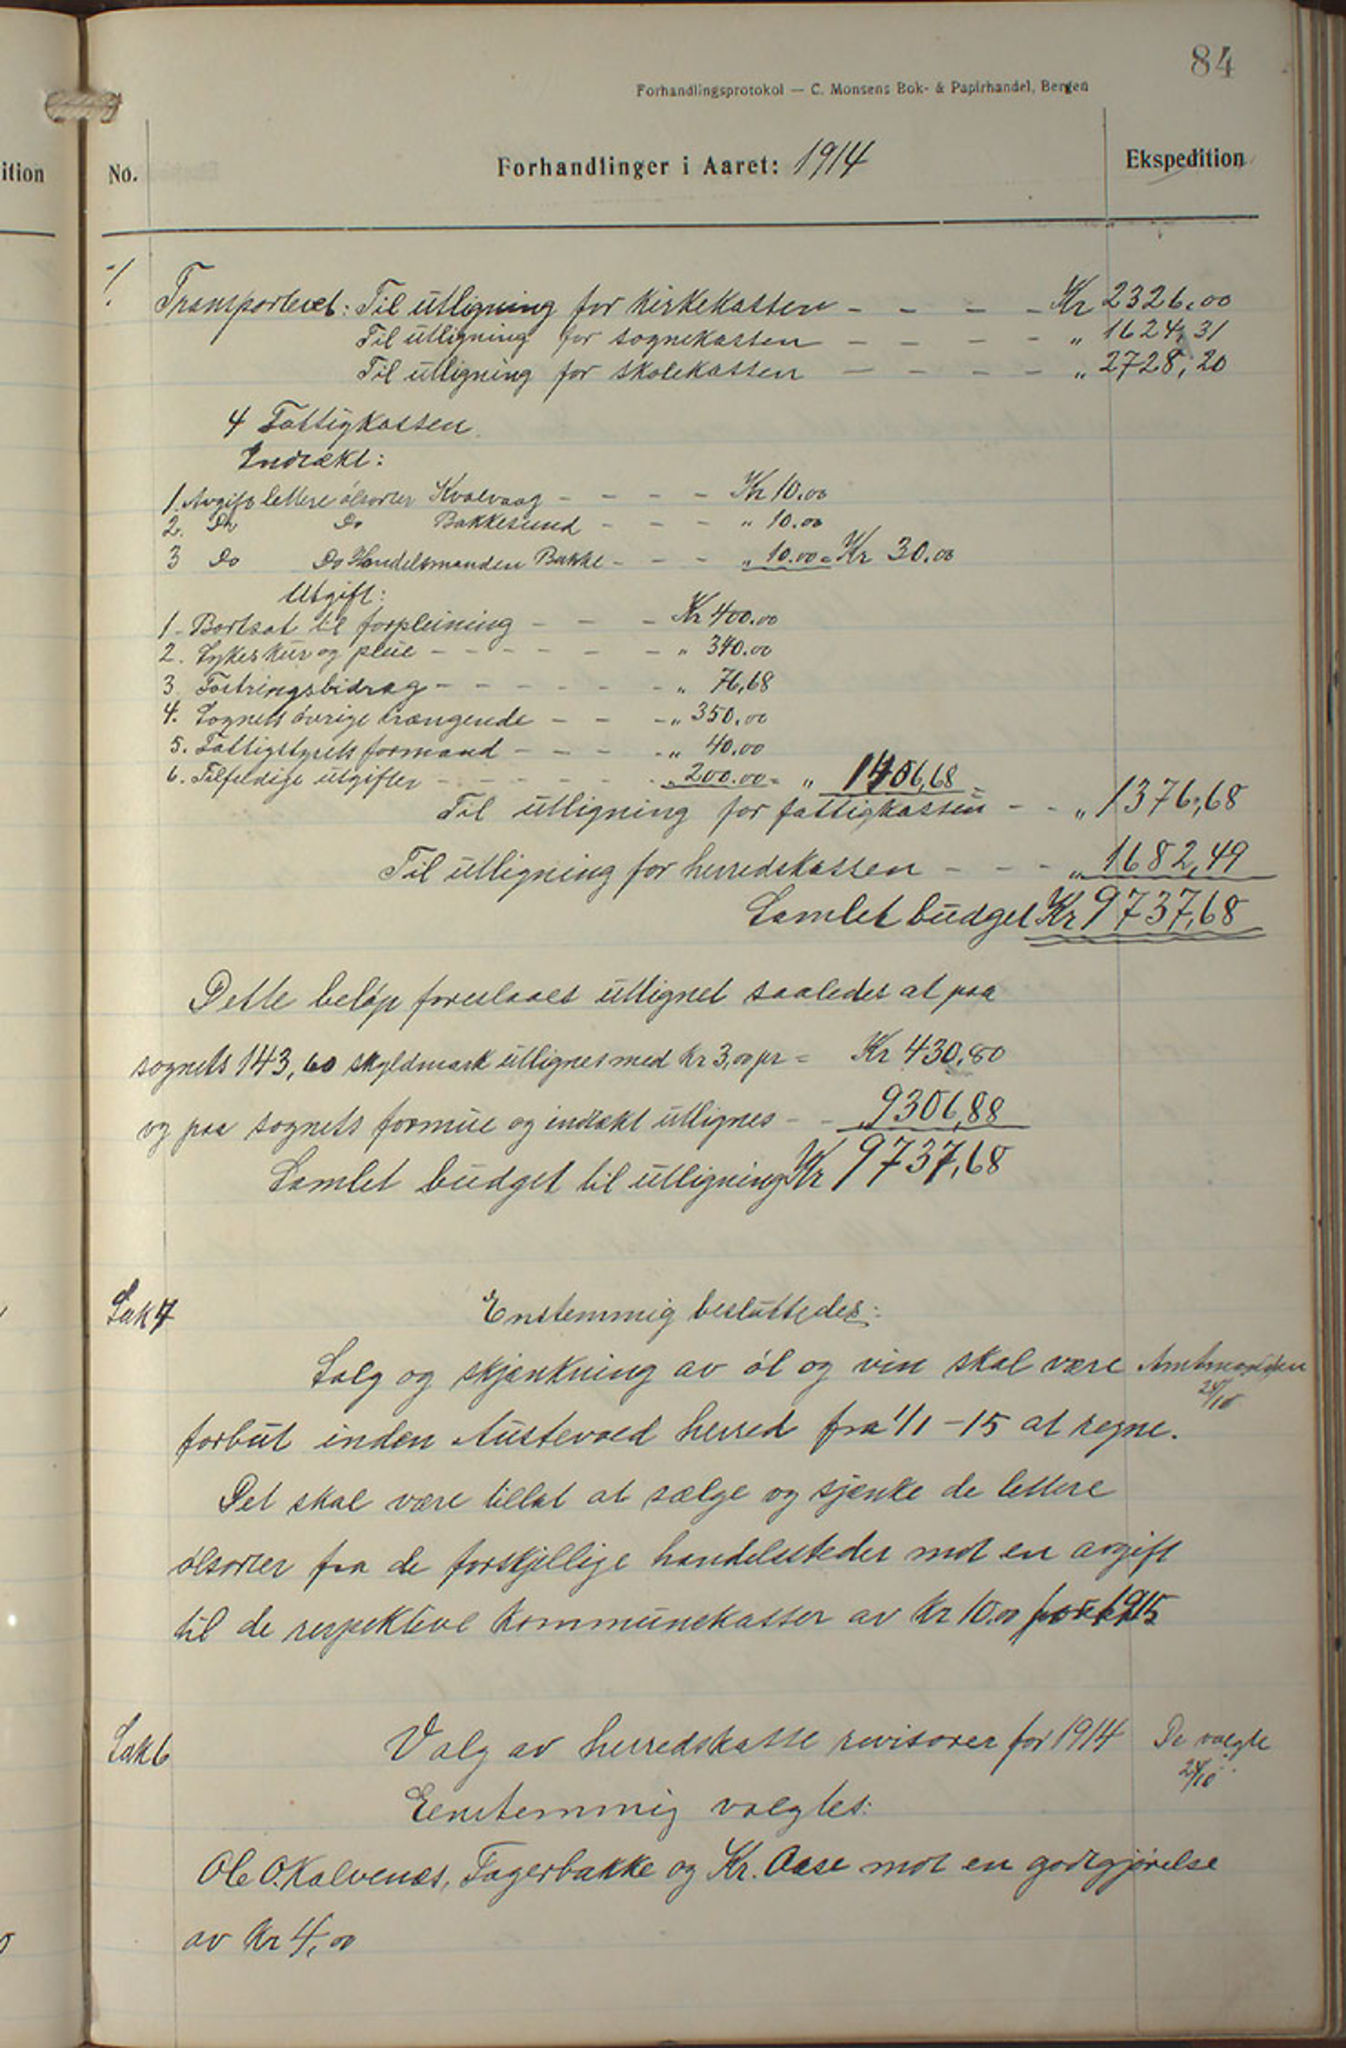 84
Forhandlingsprotokol — C. Monsens Bok- & Papirhandel, Bergen
ition
No.
Forhandlinger i Aaret: 1914
Ekspedition
Transportert: Til utligning for kirkekassen - - - - Kr 2326.00
Til utligning for sognekassen - - - - " 1624,31
Til utligning for skolekassen - - - - " 2728,20
4 Fattigkassen
Indtækt:
1. Avgift lettere ölsorter Kvalvaag - - - - Kr 10.00
2. Do Do Bakkesund - - - " 10.00
3 Do Do Handelsmanden Bakke - - - " 10.00 = Kr 30.00
Utgift:
1 - Bortsat til forpleining - - - Kr 400.00
2. Sykeskur og pleie - - - - - - " 340.00
3 Fostringsbidrag - - - - - - " 76,68
4. Sognets övrige trængende - - - " 350.00
5. Fattigstyrets formand - - - - " 40.00
6. Tilfeldige utgifter - - - - - - " 200.00 = " 1406,68 =
Til utligning for fattigkassen - - " 1376,68
Til utligning for herredskassen - - - " 1682,49
Samlet budget Kr 9737,68
Dette beløp foreslaaes utlignet saaledes at paa
sognets 143,60 skyldmark utlignes med kr 3,00 pr = Kr 430,80
og paa sognets formue og indtækt utlignes - - " 9306,88
Samlet budget til utligning Kr 9737,68
Sak 7
Enstemmig besluttedes:
Salg og skjænkning av öl og vin skal være
Amtmanden
24/10
forbut inden Austevold herred fra 1/1 - 15 at regne.
Det skal være tillat at sælge og sjænke de lettere
ölsorter fra de forskjellige handelssteder mot en avgift
til de respektive kommunekasser av kr 10.00 for 1915
Sak 6
Valg av herredskasse revisorer for 1914
De valgte
24/10
Eenstemmig valgtes:
Ole O. Kalvenæs, Fagerbakke og Kr. Aase mot en godtgjörelse
av kr 4,00